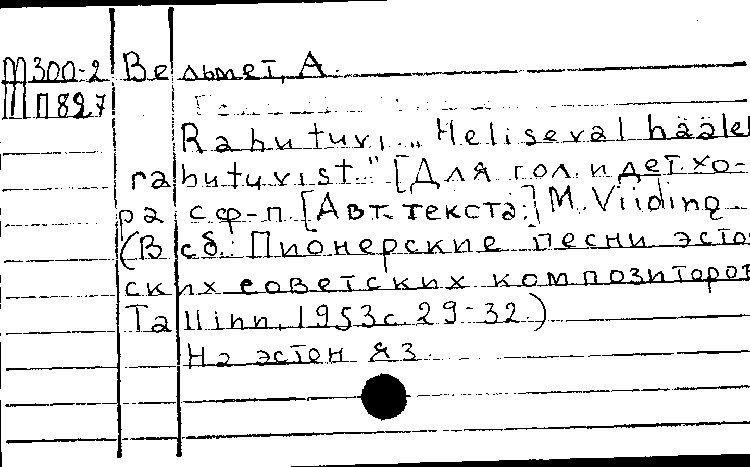 М300-2 Вельмет, А.
П827
Rahutuvi „Heliseval hääle
rahutuvist." [Для гол. и дет. хо-
ра с ф-п. [Авт. текста:] M. Viiding
(В сб.: Пионерские песни эсто
ских советских композиторов
Tallinn, 1953 с. 29-32.)
На эстон яз.